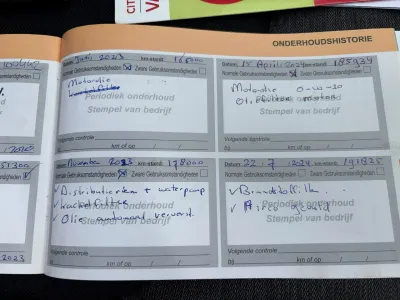 CIT
VA
ONDERHOUDSHISTORIE
Datum: Juli 2023 km-stand: 168000
Normale Gebruiksomstandigheden Zware Gebruiksomstandigheden
Motorolie
Periodiek onderhoud
Stempel van bedrijf
Volgende controle
bij km of op / /
Datum: 15 April 2024 km-stand: 185934
Normale Gebruiksomstandigheden Zware Gebruiksomstandigheden
Motorolie 0-w-20
Periodiek onderhoud
Stempel van bedrijf
Volgende controle
bij km of op / /
Datum: November 2023 km-stand: 178000
Normale Gebruiksomstandigheden Zware Gebruiksomstandigheden
✓ Distributieriem + waterpomp
Periodiek onderhoud
✓ Olie automaat ververst.
Stempel van bedrijf
Volgende controle
bij km of op / /
Datum: 22-7-2024 km-stand: 191825
Normale Gebruiksomstandigheden Zware Gebruiksomstandigheden
✓ Brandstoffilter
Periodiek onderhoud
✓ Airco gevuld
Stempel van bedrijf
Volgende controle
bij km of op / /
2023